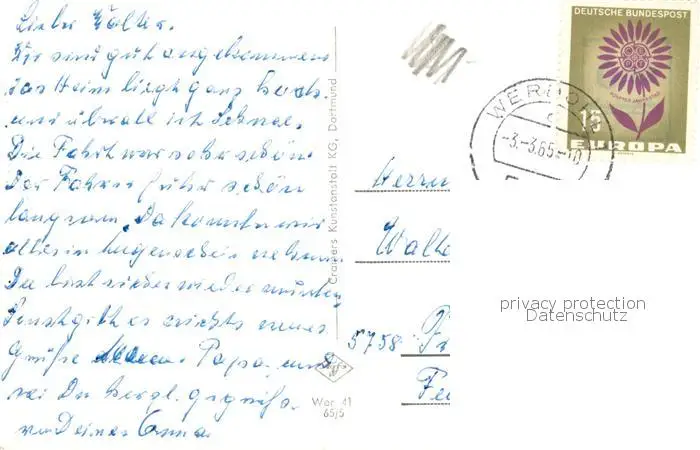 Lieber Walter.
Wir sind gut angekommen
das Heim liegt ganz hoch
und überall ist Schnee.
Die Fahrt war sehr schön.
Der Fahrer fuhr schön
langsam. Da konnten wir
alles in Augenschein nehmen
Du bist sicher wieder
Sonst gibt es nichts neues
Grüße Papa und
sei Du herzl. gegrüßt.
von Deiner Anna
Cramers Kunstanstalt KG, Dortmund
Wer 41
65/5
DEUTSCHE BUNDESPOST
15
EUROPA
WERDOH
-3.-3.65.-10
Herrn
Walte
5758
privacy protection
Datenschutz